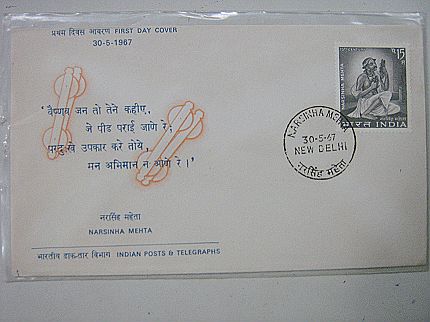 प्रथम दिवस आवरण FIRST DAY COVER
30-5-1967
'वैष्णव जन तो तेने कहीए,
जे पीड पराई जाणे रे;
पर दुःखे उपकार करे तोये,
मन अभिमान न आणे रे।'
नरसिंह महेता
NARSINHA MEHTA
भारतीय डाक-तार विभाग INDIAN POSTS & TELEGRAPHS
NARSINHA MEHTA
30-5-67
NEW DELHI
नरसिंह महेता
15
NARSINHA MEHTA
भारत INDIA